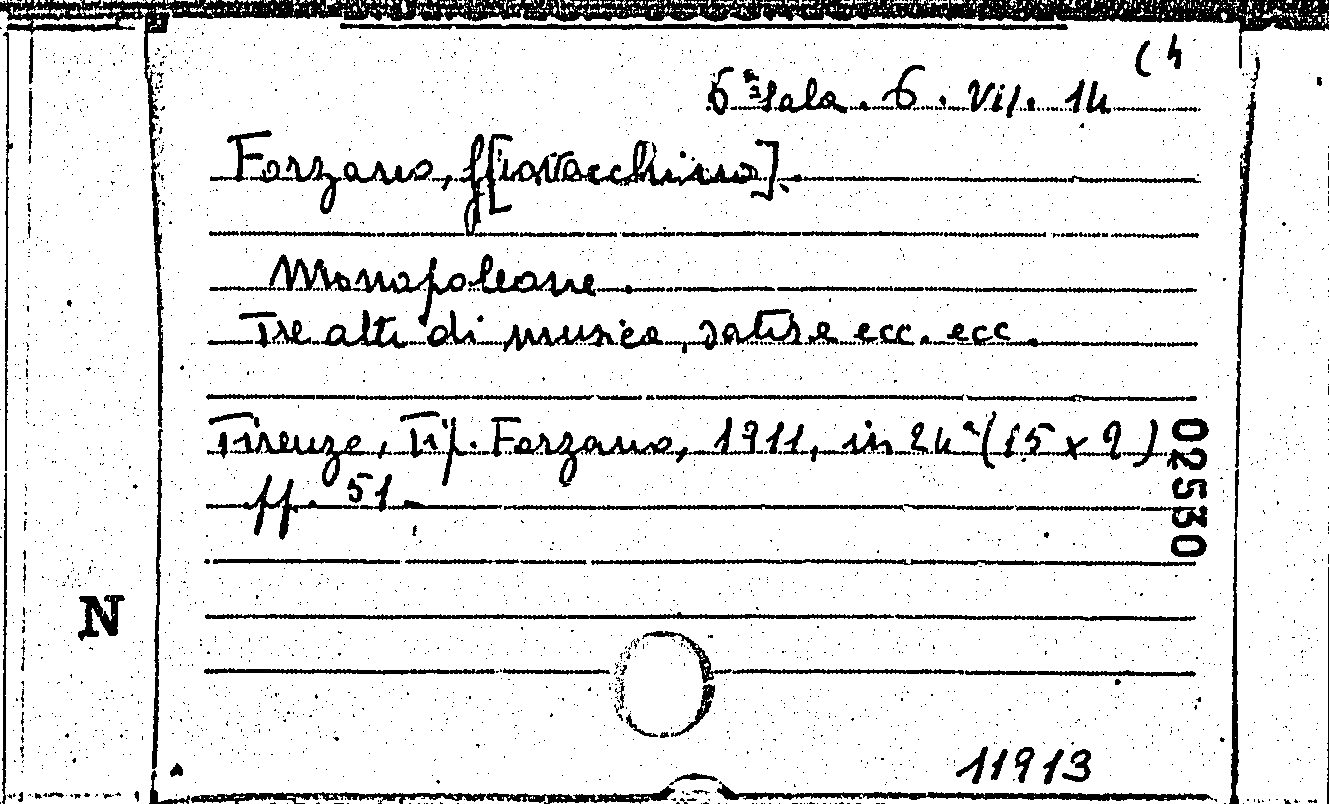 (4
6ª Sala. 6. VII. 14
Forzano, G[iovacchino].
Monapoleone.
Tre atti di musica, satire ecc. ecc.
Firenze, Tip. Forzano, 1911, in 24° (15 x 9)
pp. 51.
02530
N
11913